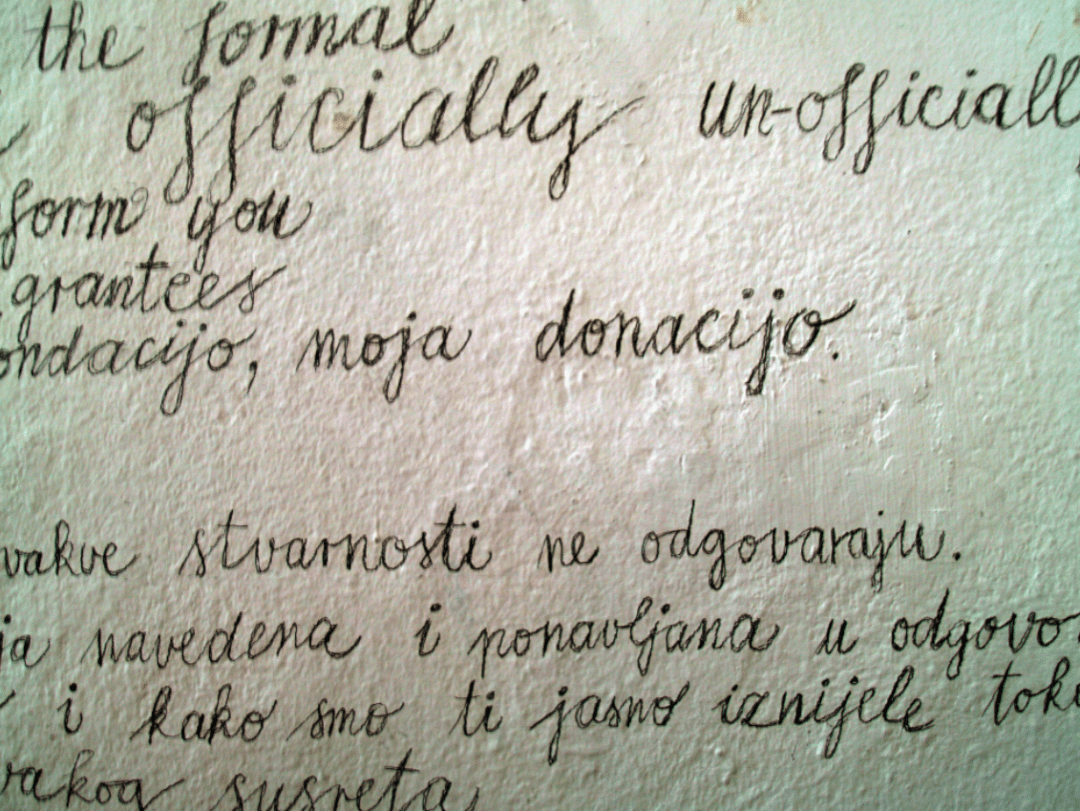 the formal
officially un-officiall
form you
grantees
ondacijo, moja donacijo.
vakve stvarnosti ne odgovaraju.
ja navedena i ponavljana u odgovo
i kako smo ti jasno iznijele tok
vakog susreta